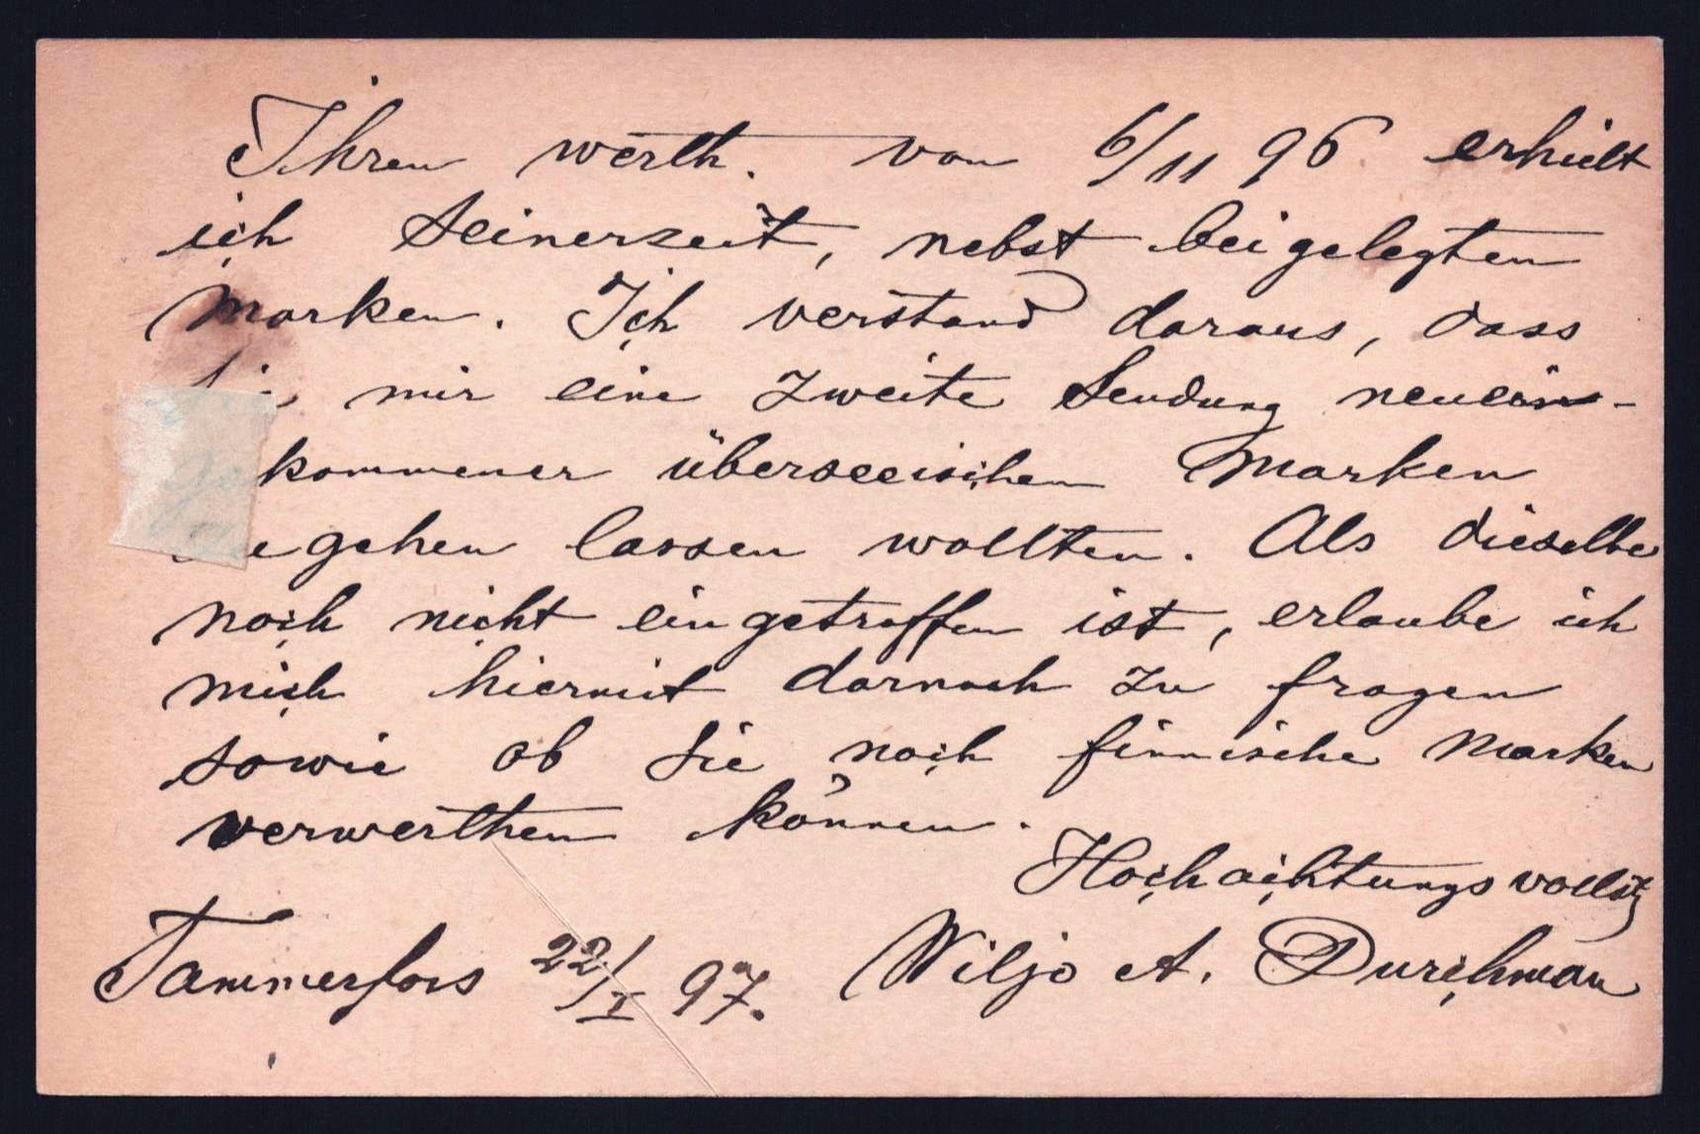 Ihren werth. von 6/11 96 erhielt
ich Seinerzeit, nebst beigelegten
Marken. Ich verstand daraus, dass
mir eine zweite Sendung neuein-
kommener überseeischen Marken
gehen lassen wollten. Als dieselbe
noch nicht eingetroffen ist, erlaube ich
mich hiermit darnach zu fragen
sowie ob Sie noch finnische Marken
verwerthen können.
Hochachtungsvollst
Tammerfors 22/I 97. Wiljo A. Durchman